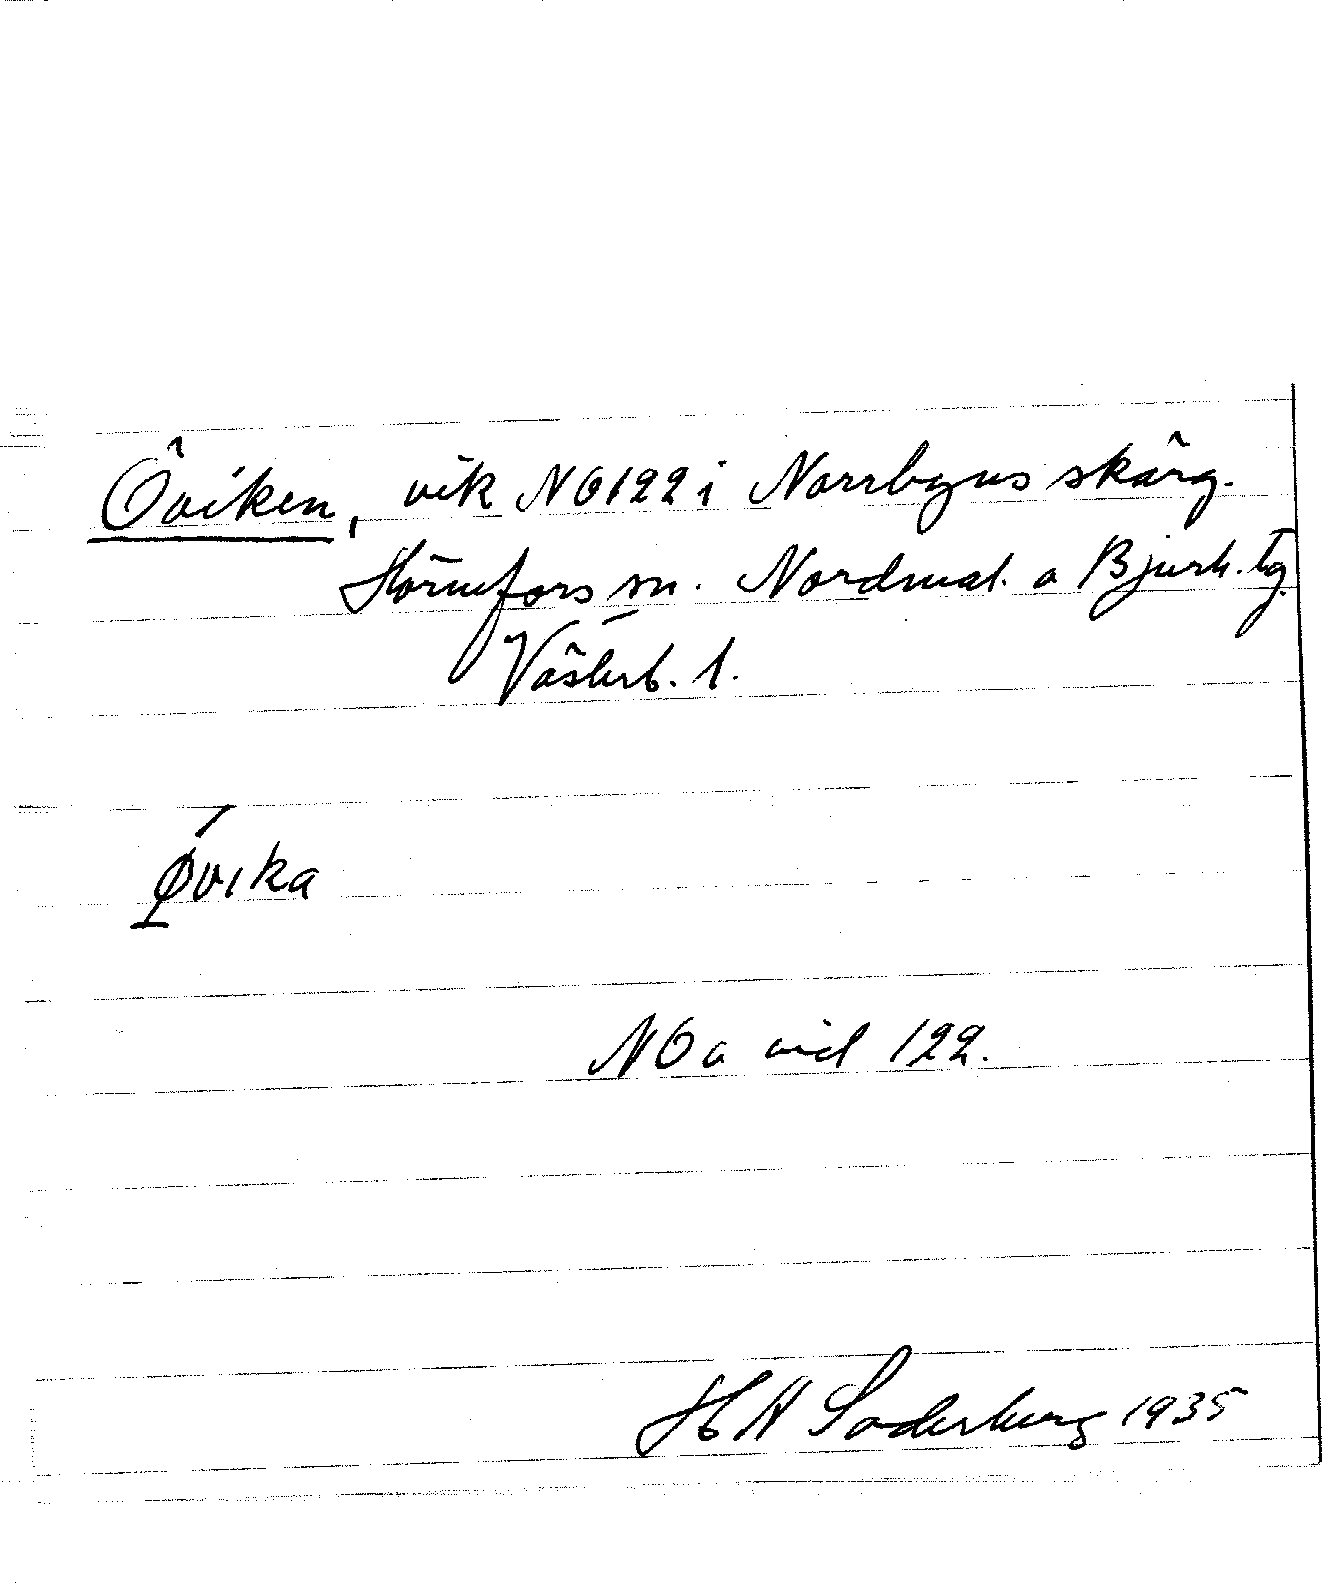 Öviken, vik NO 122 i Norrbyns skärg.
Hörnefors sn. Nordmal. o Bjurh. tg
Västerb. l.
Øvika
NO o vid 122.
H A Söderberg 1935